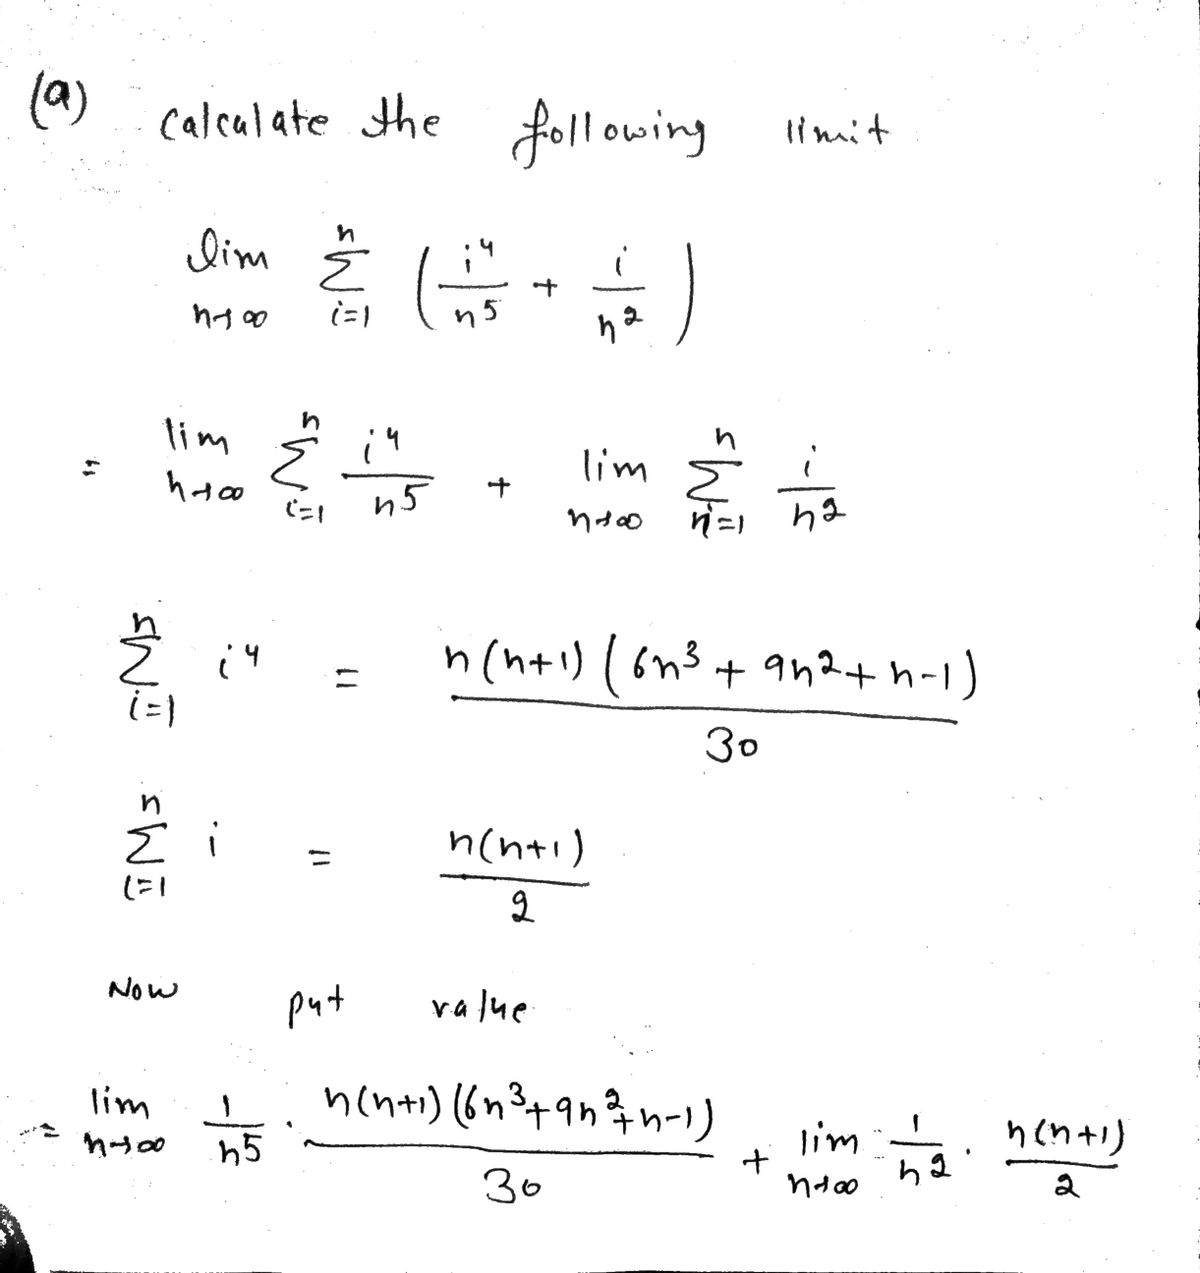 (a) Calculate the following limit
lim n→∞ Σ i=1 n ( i⁴/n⁵ + i/n² )
= lim n→∞ Σ i=1 n i⁴/n⁵ + lim n→∞ Σ i=1 n i/n²
Σ i=1 n i⁴ = n(n+1)(6n³+9n²+n-1)/30
Σ i=1 n i = n(n+1)/2
Now put value
= lim n→∞ 1/n⁵ · n(n+1)(6n³+9n²+n-1)/30 + lim n→∞ 1/n² · n(n+1)/2